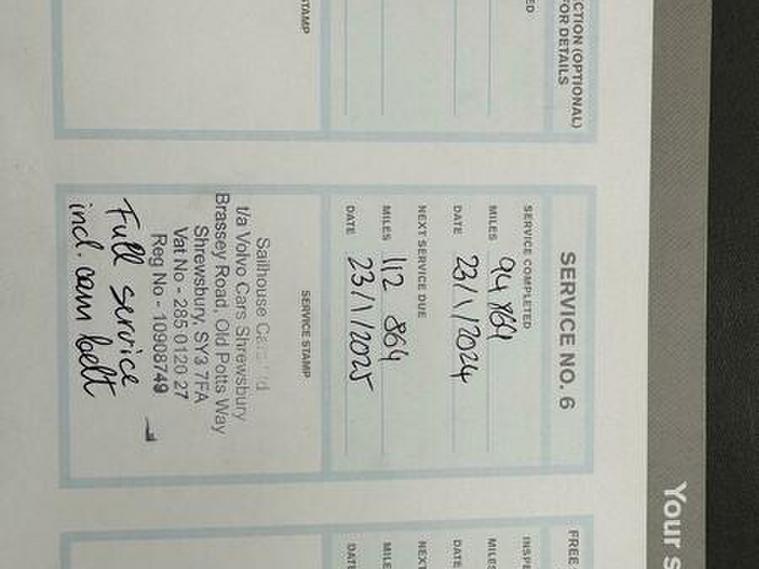 CTION (OPTIONAL)
FOR DETAILS
ED
STAMP
SERVICE NO. 6
SERVICE COMPLETED
MILES 94 864
DATE 23/1/2024
NEXT SERVICE DUE
MILES 112 864
DATE 23/1/2025
SERVICE STAMP
Sailhouse
t/a Volvo Cars Shrewsbury
Brassey Road, Old Potts Way
Shrewsbury, SY3 7FA
Vat No - 285 0120 27
Reg No - 10908749
Full service
incl. cam belt
FREE
INSPE
MILES
DATE
NEXT
MILE
DATE
Your s